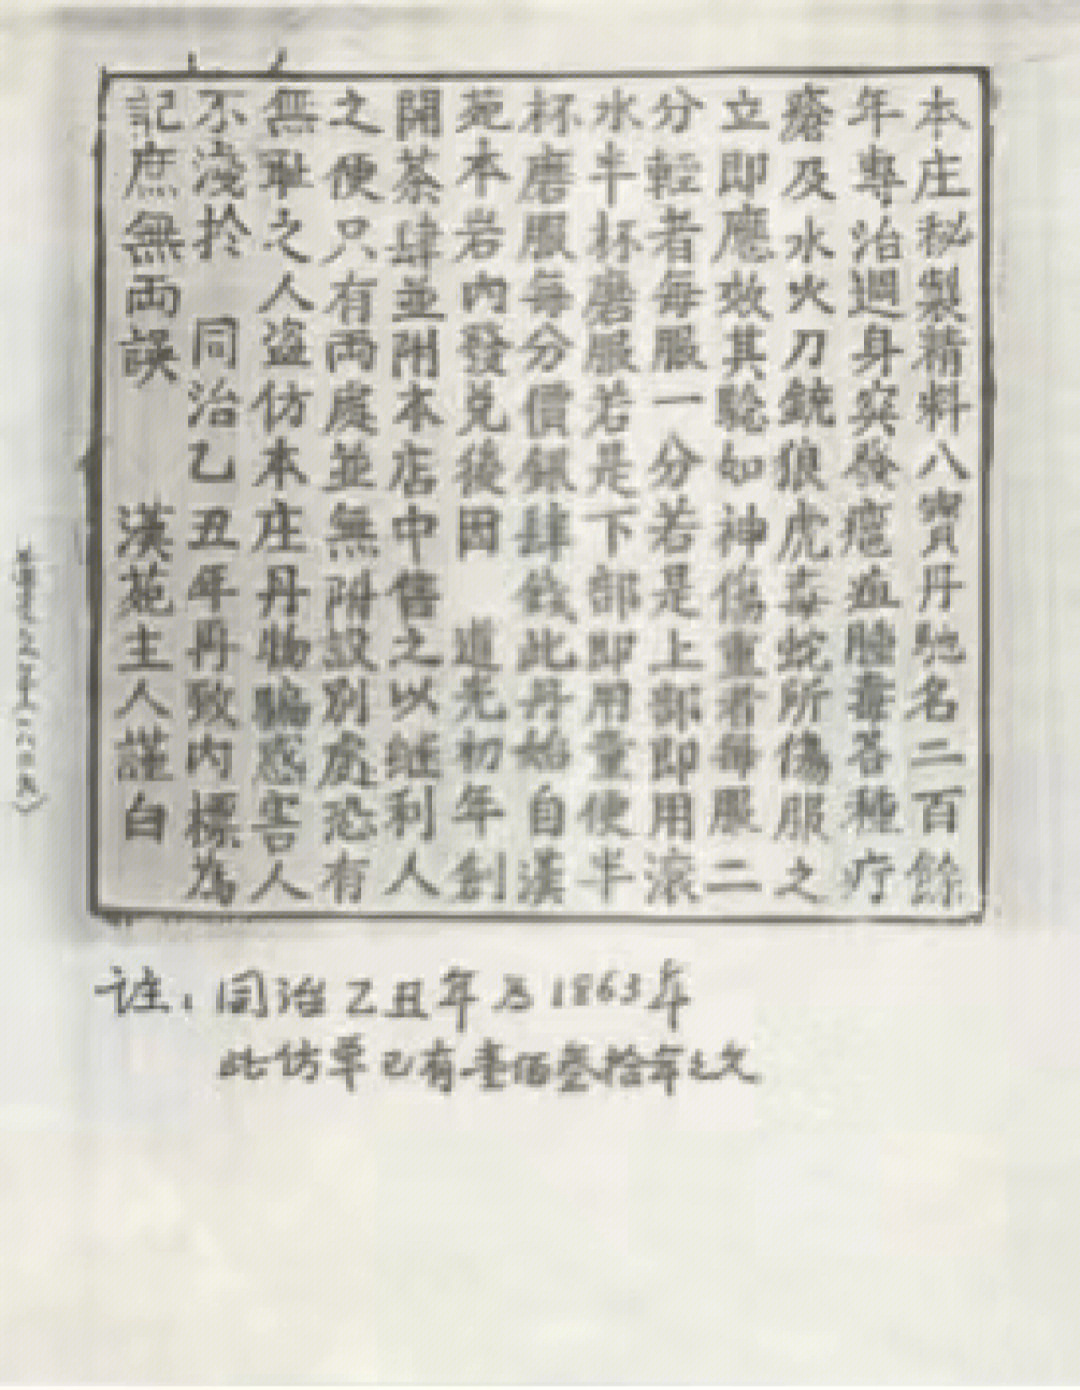 本庄秘製精料八寶丹馳名二百餘
年專治週身突發瘟血腫毒各種疔
瘡及水火刀銃狼虎毒蛇所傷服之
立即應效其驗如神傷重者每服二
分輕者每服一分若是上部即用滾
水半杯磨服若是下部即用童便半
杯磨服每分價銀肆錢此丹始自漢
苑本岩內發兌後因 道光初年創
開茶肆並附本店中售之以继利人
之便只有両處並無附設別處恐有
無耻之人盜仿本庄丹物騙惑害人
不淺於 同治乙丑年再致內標為
記庶無両誤 漢苑主人謹白
註：同治乙丑年為1863年
此仿單已有壹佰叁拾年之久